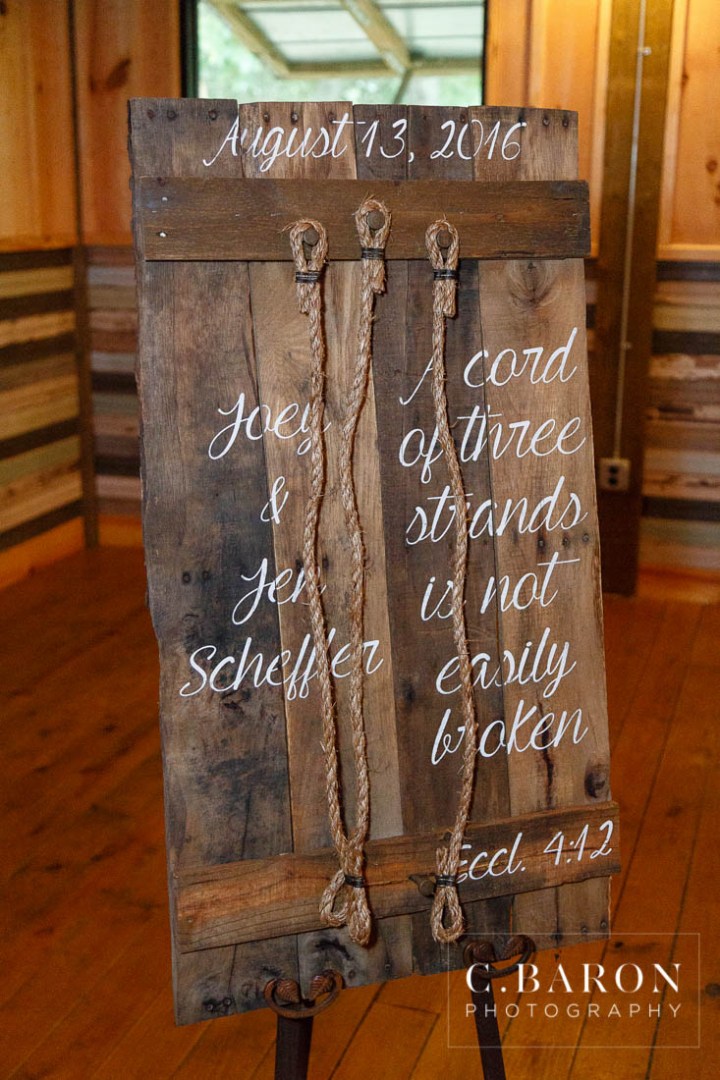 August 13, 2016
Joey
&
Jen
Scheffler
A cord
of three
strands
is not
easily
broken
Eccl. 4:12
C.BARON
PHOTOGRAPHY